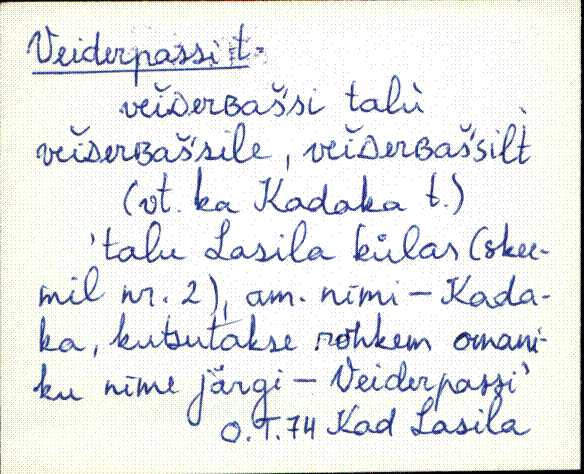 Veiderpassi t.
veĭᴅerʙaš́si talù
veĭᴅerʙaš́sile, veĭᴅerʙaš́silt̀
(vt. ka Kadaka t.)
'talu Lasila külas (skee-
mil nr. 2), am. nimi – Kada-
ka, kutsutakse rohkem omani-
ku nime järgi – Veiderpassi'
O.T.74 Kad Lasila